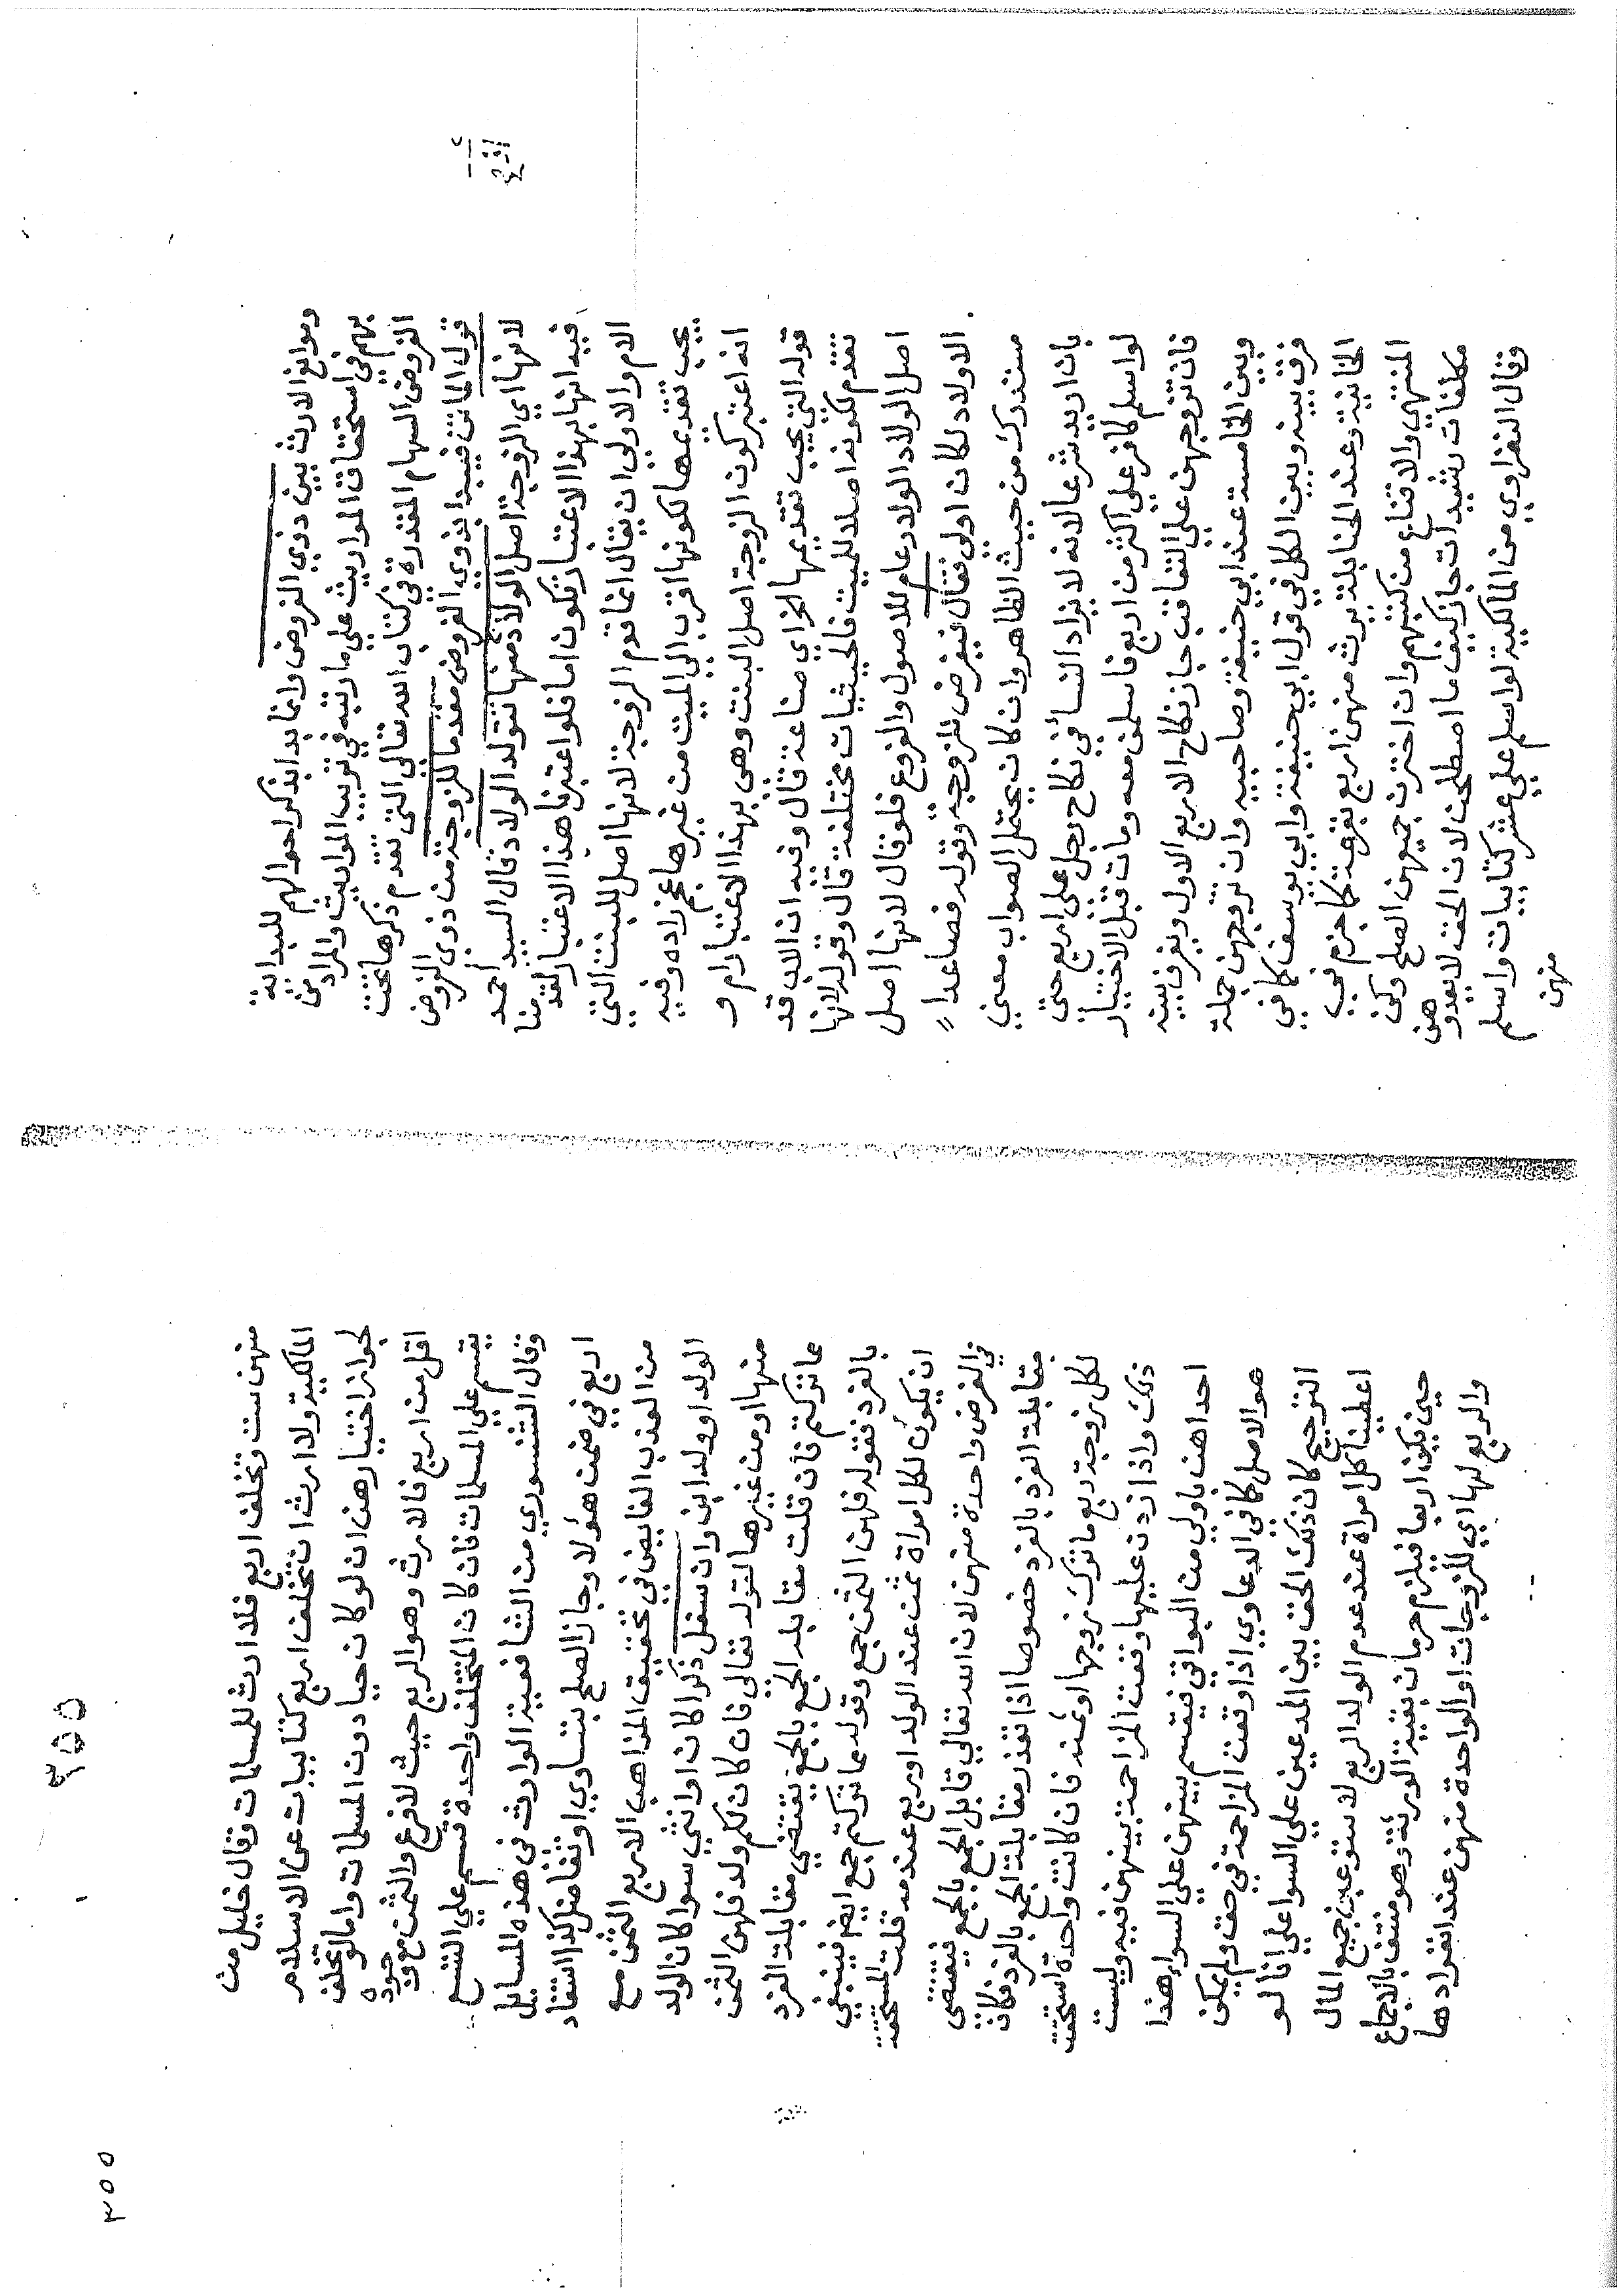 وموانع الارث بين ذوي الفروض وانما بدا بذكر احوالهم للبداية
بهم في استحقاق المواريث علي ما رتبه في ترتيب المواريث والمراد من
الفروض السهام المقدرة في كتاب الله تعالي التي تقدم ذكرها تحت
قول الماتن فيبدا بذوي الفروض مقدما للزوجة من ذوي الفروض
لانها اي الزوجة اصل الولاد منها تتولد الولاد قال السيد احمد
فيه انها بهذا الاعتبار تكون اما فلو اعتبرنا هذا الاعتبار لقدمنا
الام والاولي ان يقال انما قدم الزوجة لانها اصل للبنت التي
يجب تقديمها لكونها اقرب الي الميت من غيرها عجم زاده وفيه
انه اعتبر كون الزوجة اصل البنت وهي بهذا الاعتبار ام و
قوله التي يجب تقديمها الخ اي صناعة قال وفيه ان الاب قد
تقدم لكونه اصلا للميت فالحيثيات مختلفة قال وقوله لانها
اصل الولاد الولاد عام للاصول والفروع فلو قال لانها اصل
الاولاد لكان اولي فقال فيفرض للزوجة وقوله فصاعدا
مستدرك من حيث الظاهر وان كان يحتمل الصواب معني
بان اريد شرعا لانه لا يزاد النسا في نكاح رجل علي اربع حتي
لو اسلم كافر علي اكثر من اربع فاسلمن معه ومات قبل الاختيار
فان تزوجهن علي التعاقب جاز نكاح الاربع الاول ويفرق بينه
وبين الخامسة عند ابي حنيفة وصاحبيه وان تزوجهن جملة
فرق بينه وبين الكل في قول ابي حنيفة وابي يوسف كما في
الخانية وعند الحنابلة يرث منهن اربع بقرعة كما جزم به في
المنتهي والاقناع من كتبهم وان اخترن جميعهن الصلح وكن
مكلفات رشيدات جاز كيف ما اصطلحن لان الحق لا يعدوهن
وقال النفراوي من المالكية لو اسلم علي عشر كتابيات واسلم
منهن
٣٥٥
٣٥٥
منهن ست وتخلف اربع فلا ارث للمسلمات وقال خليل من
المالكية ولا ارث ان تخلف اربع كتابيات عن الاسلام
لجواز اختيارهن ان لو كان حيا دون المسلمات واما لو تخلف
اقل من اربع فالارث وهو الربع حيث لا فرع والثمن مع وجوده
يقسم علي المسلمات فان كان المتخلف واحدة قسم علي التسع
وقال الشنشوري من الشافعية الوارث في هذه المسايل
اربع في ضمن هؤلا وجاز الصلح بتساوي او تفاضل كذا استفاد
من العذب الفايض في تحقيق المذاهب الاربع الثمن مع
الولد او ولد ابن وان سفل ذكرا كان او انثي سوا كان الولد
منها او من غيرها لقوله تعالي فان كان لكم ولد فلهن الثمن
مما تركتم فان قلت مقابلة الجمع بالجمع يقتضي مقابلة الفرد
بالفرد فقوله فلهن الثمن جمع وقوله مما تركتم جمع ايضا فينبغي
ان يكون لكل امراة ثمن عند الولد او ربع عند عدمه قلت المستحقة
في الفرض واحدة منهن لان الله تعالي قابل الجمع بالجمع فيقتضي
مقابلة الفرد بالفرد خصوصا اذا تعذر مقابلة الجمع بالفرد فكان
لكل زوجة ربع ما ترك زوجها او ثمنه فان كانت واحدة استحقت
ذلك واذا زدن عليها وقعت المزاحمة بينهن فيه وليست
احداهن باولي من البواقي فيقسم بينهن علي السواء هذا
هو الاصل كما في الدعاوي اذا وقعت المزاحمة في حق ولم يمكن
الترجيح كان ذلك الحق بين المدعين علي السوا علي انا لو
اعطينا كل امراة عند عدم الولد الربع لاستوعبن جميع المال
حين يكن اربعا فيلزم حرمان بقية الورثة وهو منتف بالاجماع
والربع لها اي للزوجات او الواحدة منهن عند انفرادها